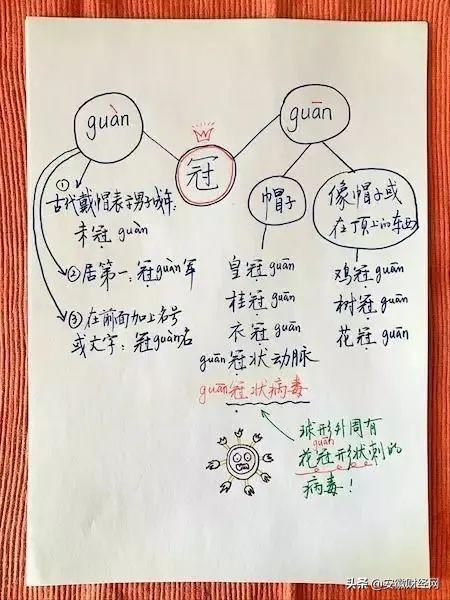 guàn
guān
冠
①
古代戴帽表示男子成年:
未冠 guàn
②居第一:冠guàn军
③在前面加上名号
或文字:冠guàn名
帽子
皇冠guān
桂冠guān
衣冠guān
guān冠状动脉
guān冠状病毒
像帽子或
在顶上的东西
鸡冠guān
树冠guān
花冠guān
球形外周有
guān
花冠形状刺的
病毒!
头条 @安徽财经网